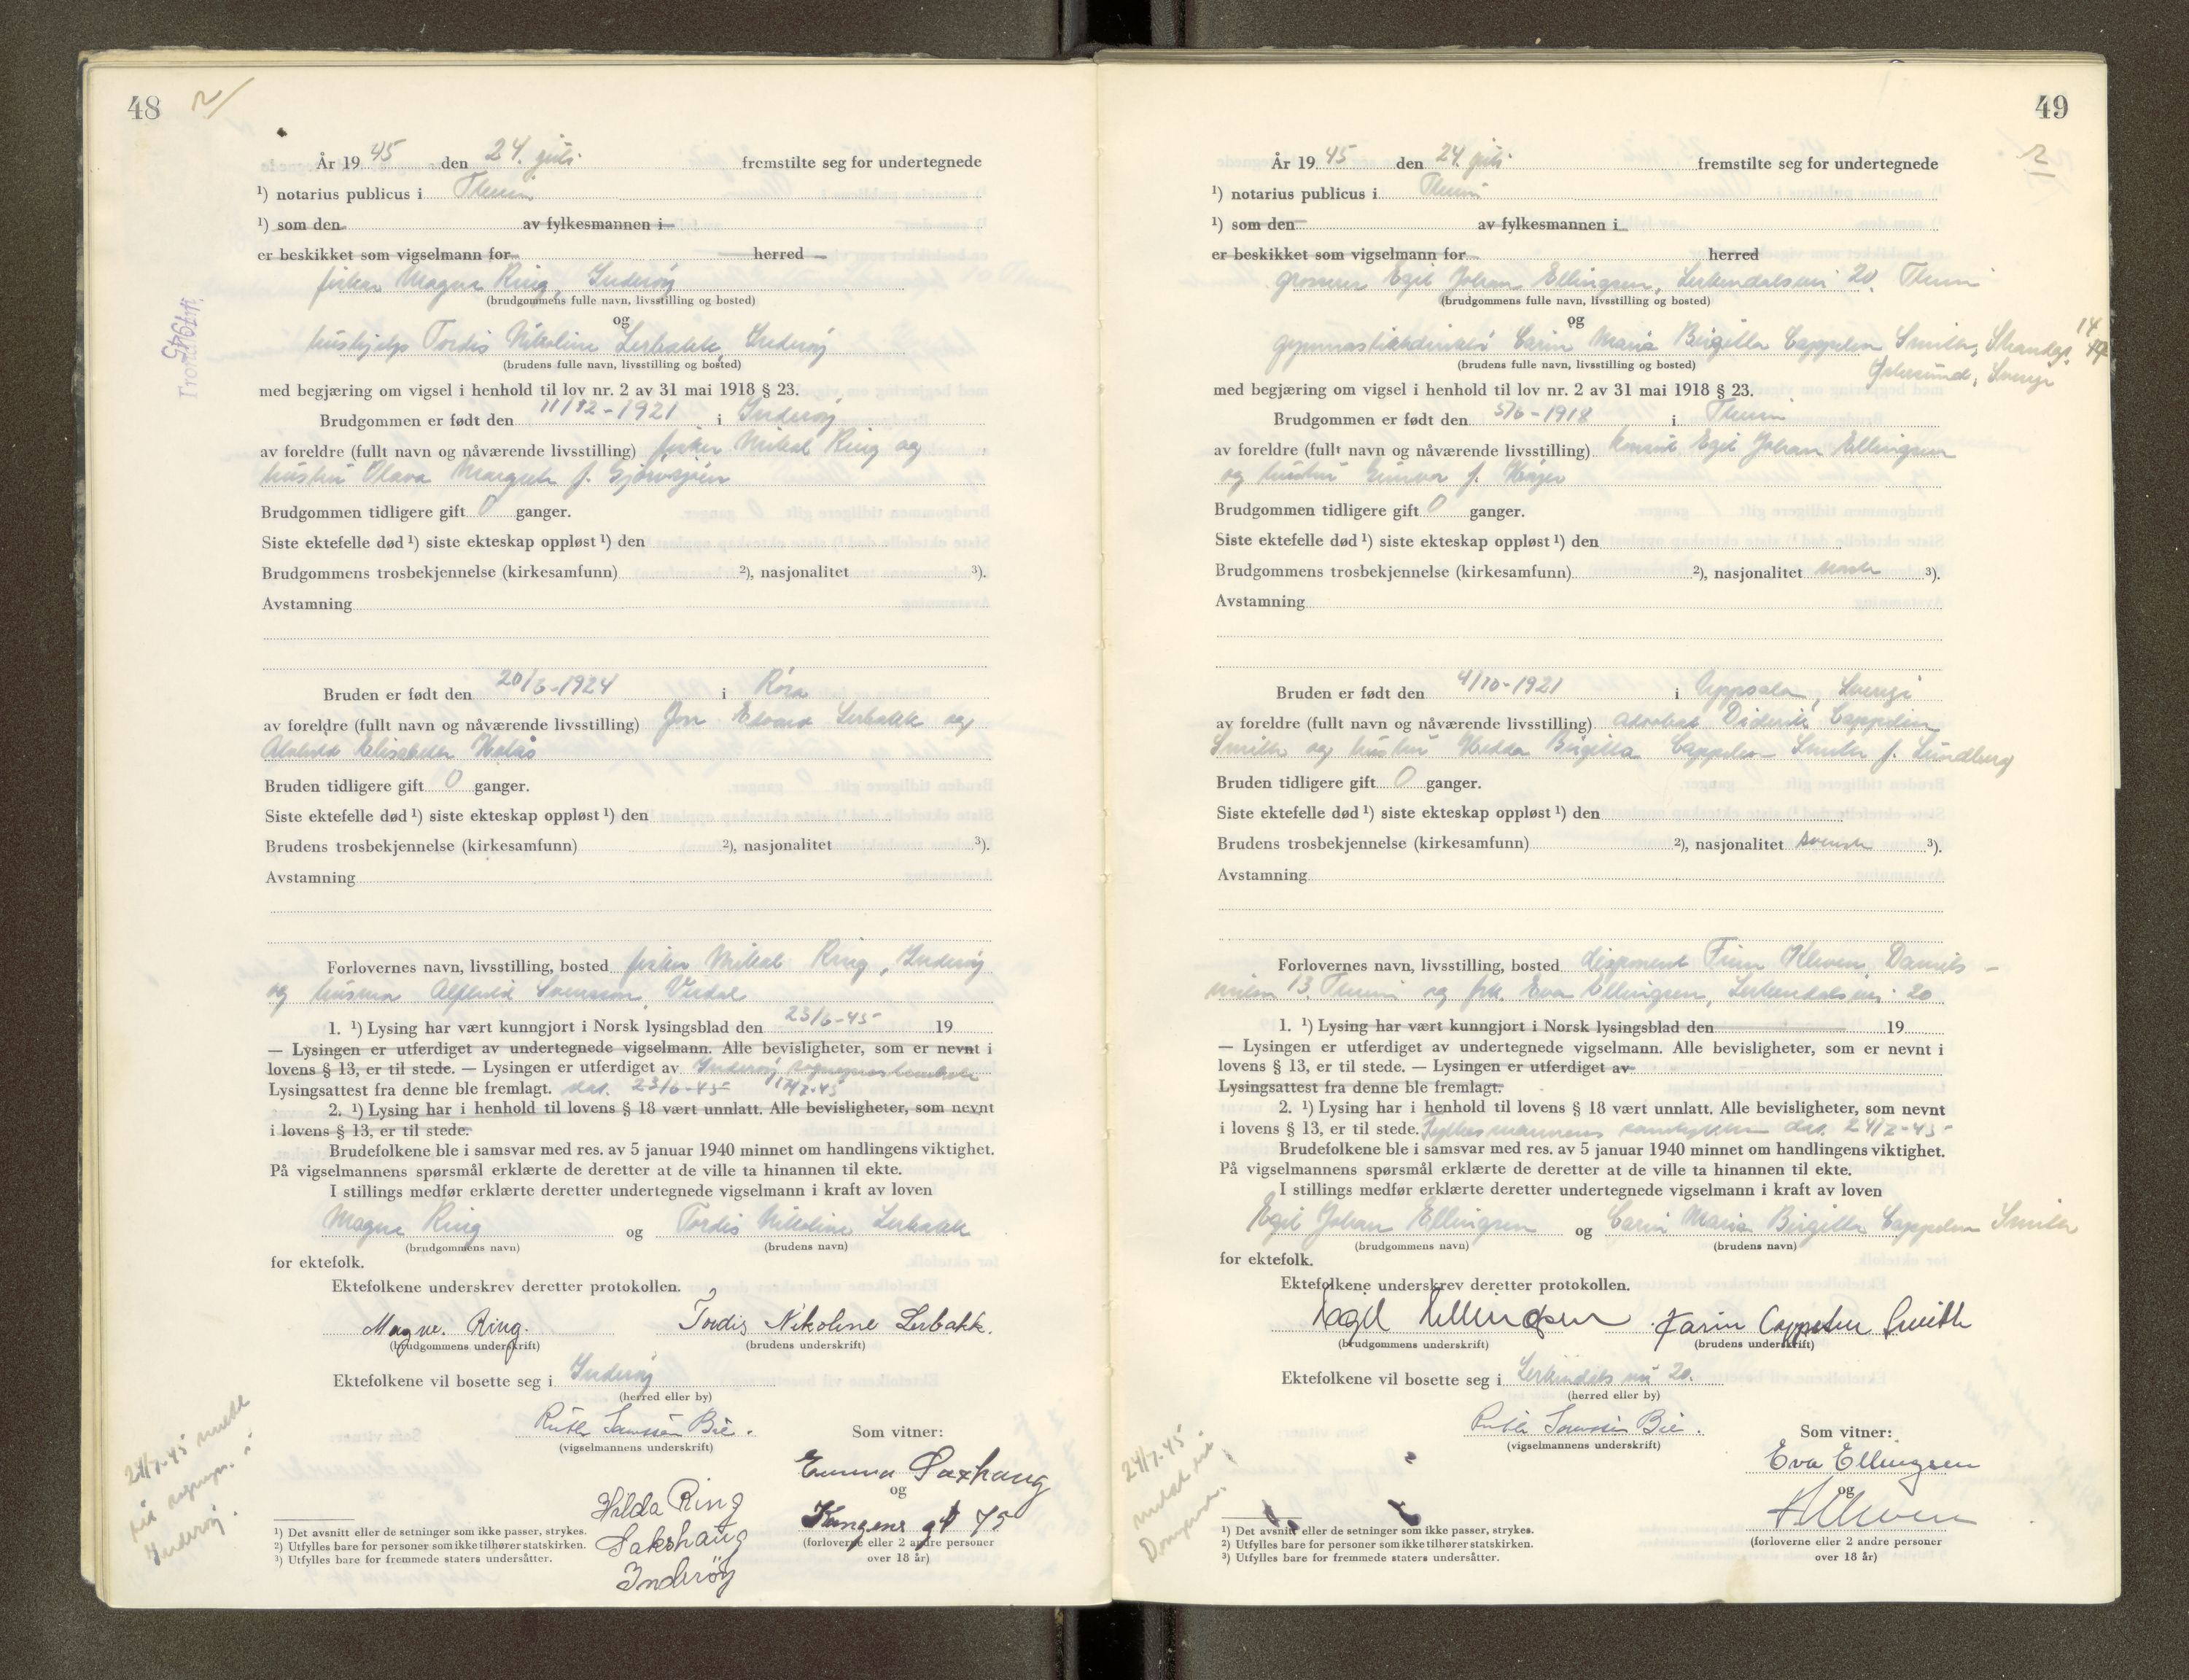 48
År 19 45 den 24. juli fremstilte seg for undertegnede
¹) notarius publicus i Thrm
¹) som den av fylkesmannen i
er beskikket som vigselmann for herred
fisker Magne Ring, Inderøy
(brudgommens fulle navn, livsstilling og bosted)
og
hushjelp Tordis Nikoline Lerbakk, Inderøy
(brudens fulle navn, livsstilling og bosted)
med begjæring om vigsel i henhold til lov nr. 2 av 31 mai 1918 § 23.
Brudgommen er født den 11/12-1921 i Inderøy
av foreldre (fullt navn og nåværende livsstilling) fisker Mikal Ring og
hustru Olava Margrete f.
Brudgommen tidligere gift 0 ganger.
Siste ektefelle død ¹) siste ekteskap oppløst ¹) den
Brudgommens trosbekjennelse (kirkesamfunn) ²), nasjonalitet ³).
Avstamning
Bruden er født den 20/6-1924 i Røra
av foreldre (fullt navn og nåværende livsstilling) Jon Edvard Lerbakk og
Alvhild Elisabeth
Bruden tidligere gift 0 ganger.
Siste ektefelle død ¹) siste ekteskap oppløst ¹) den
Brudens trosbekjennelse (kirkesamfunn) ²), nasjonalitet ³).
Avstamning
Forlovernes navn, livsstilling, bosted fisker Mikal Ring, Inderøy
og husmor Alfhild Svensson, Verdal
1. ¹) Lysing har vært kunngjort i Norsk lysingsblad den 23/6-45 19
— Lysingen er utferdiget av undertegnede vigselmann. Alle bevisligheter, som er nevnt i
lovens § 13, er til stede. — Lysingen er utferdiget av Inderøy sogneprestembete
Lysingsattest fra denne ble fremlagt. dat. 23/6-45
2. ¹) Lysing har i henhold til lovens § 18 vært unnlatt. Alle bevisligheter, som nevnt
i lovens § 13, er til stede.
Brudefolkene ble i samsvar med res. av 5 januar 1940 minnet om handlingens viktighet.
På vigselmannens spørsmål erklærte de deretter at de ville ta hinannen til ekte.
I stillings medfør erklærte deretter undertegnede vigselmann i kraft av loven
Magne Ring og Tordis Nikoline Lerbakk
(brudgommens navn) (brudens navn)
for ektefolk.
Ektefolkene underskrev deretter protokollen.
Magne. Ring. Tordis Nikoline Lerbakk.
(brudgommens underskrift) (brudens underskrift)
Ektefolkene vil bosette seg i Inderøy
(herred eller by)
Ruth Bie.
(vigselmannens underskrift)
Som vitner:
Emma Saxhaug
og
Kongens gt 75
(forloverne eller 2 andre personer
over 18 år)
Hilda Ring
Sakshaug
Inderøy
24/7-45 meldt
til sognepr. i
Inderøy.
¹) Det avsnitt eller de setninger som ikke passer, strykes.
²) Utfylles bare for personer som ikke tilhører statskirken.
³) Utfylles bare for fremmede staters undersåtter.
49
År 19 45 den 24. juli fremstilte seg for undertegnede
¹) notarius publicus i Thrm
¹) som den av fylkesmannen i
er beskikket som vigselmann for herred
grosserer Egil Johan Ellingsen, Lerkendalsvei 20, Thrm
(brudgommens fulle navn, livsstilling og bosted)
og
gymnastikkdirektør Carin Maria Birgitta Cappelen Smith, Strandgt. 14
Østersund, Sverige
(brudens fulle navn, livsstilling og bosted)
med begjæring om vigsel i henhold til lov nr. 2 av 31 mai 1918 § 23.
Brudgommen er født den 5/6-1918 i Thrm
av foreldre (fullt navn og nåværende livsstilling) konsul Egil Johan Ellingsen
og hustru Gunvor f.
Brudgommen tidligere gift 0 ganger.
Siste ektefelle død ¹) siste ekteskap oppløst ¹) den
Brudgommens trosbekjennelse (kirkesamfunn) ²), nasjonalitet norsk ³).
Avstamning
Bruden er født den 4/10-1921 i Uppsala, Sverige
av foreldre (fullt navn og nåværende livsstilling) advokat Diderik Cappelen
Smith og hustru Hedda Birgitta Cappelen Smith f. Lundberg
Bruden tidligere gift 0 ganger.
Siste ektefelle død ¹) siste ekteskap oppløst ¹) den
Brudens trosbekjennelse (kirkesamfunn) ²), nasjonalitet svensk ³).
Avstamning
Forlovernes navn, livsstilling, bosted disponent Finn Kleven, Daniels-
veien 13, Thrm og frk. Eva Ellingsen, Lerkendalsvei 20
1. ¹) Lysing har vært kunngjort i Norsk lysingsblad den 19
— Lysingen er utferdiget av undertegnede vigselmann. Alle bevisligheter, som er nevnt i
lovens § 13, er til stede. — Lysingen er utferdiget av
Lysingsattest fra denne ble fremlagt.
2. ¹) Lysing har i henhold til lovens § 18 vært unnlatt. Alle bevisligheter, som nevnt
i lovens § 13, er til stede. Fylkesmannens samtykke dat. 24/7-45
Brudefolkene ble i samsvar med res. av 5 januar 1940 minnet om handlingens viktighet.
På vigselmannens spørsmål erklærte de deretter at de ville ta hinannen til ekte.
I stillings medfør erklærte deretter undertegnede vigselmann i kraft av loven
Egil Johan Ellingsen og Carin Maria Birgitta Cappelen Smith
(brudgommens navn) (brudens navn)
for ektefolk.
Ektefolkene underskrev deretter protokollen.
Egil Ellingsen Karin Cappelen Smith
(brudgommens underskrift) (brudens underskrift)
Ektefolkene vil bosette seg i Lerkendals vei 20.
(herred eller by)
Ruth Bie.
(vigselmannens underskrift)
Som vitner:
Eva Ellingsen
og
(forloverne eller 2 andre personer
over 18 år)
24/7-45
meldt til
¹) Det avsnitt eller de setninger som ikke passer, strykes.
²) Utfylles bare for personer som ikke tilhører statskirken.
³) Utfylles bare for fremmede staters undersåtter.